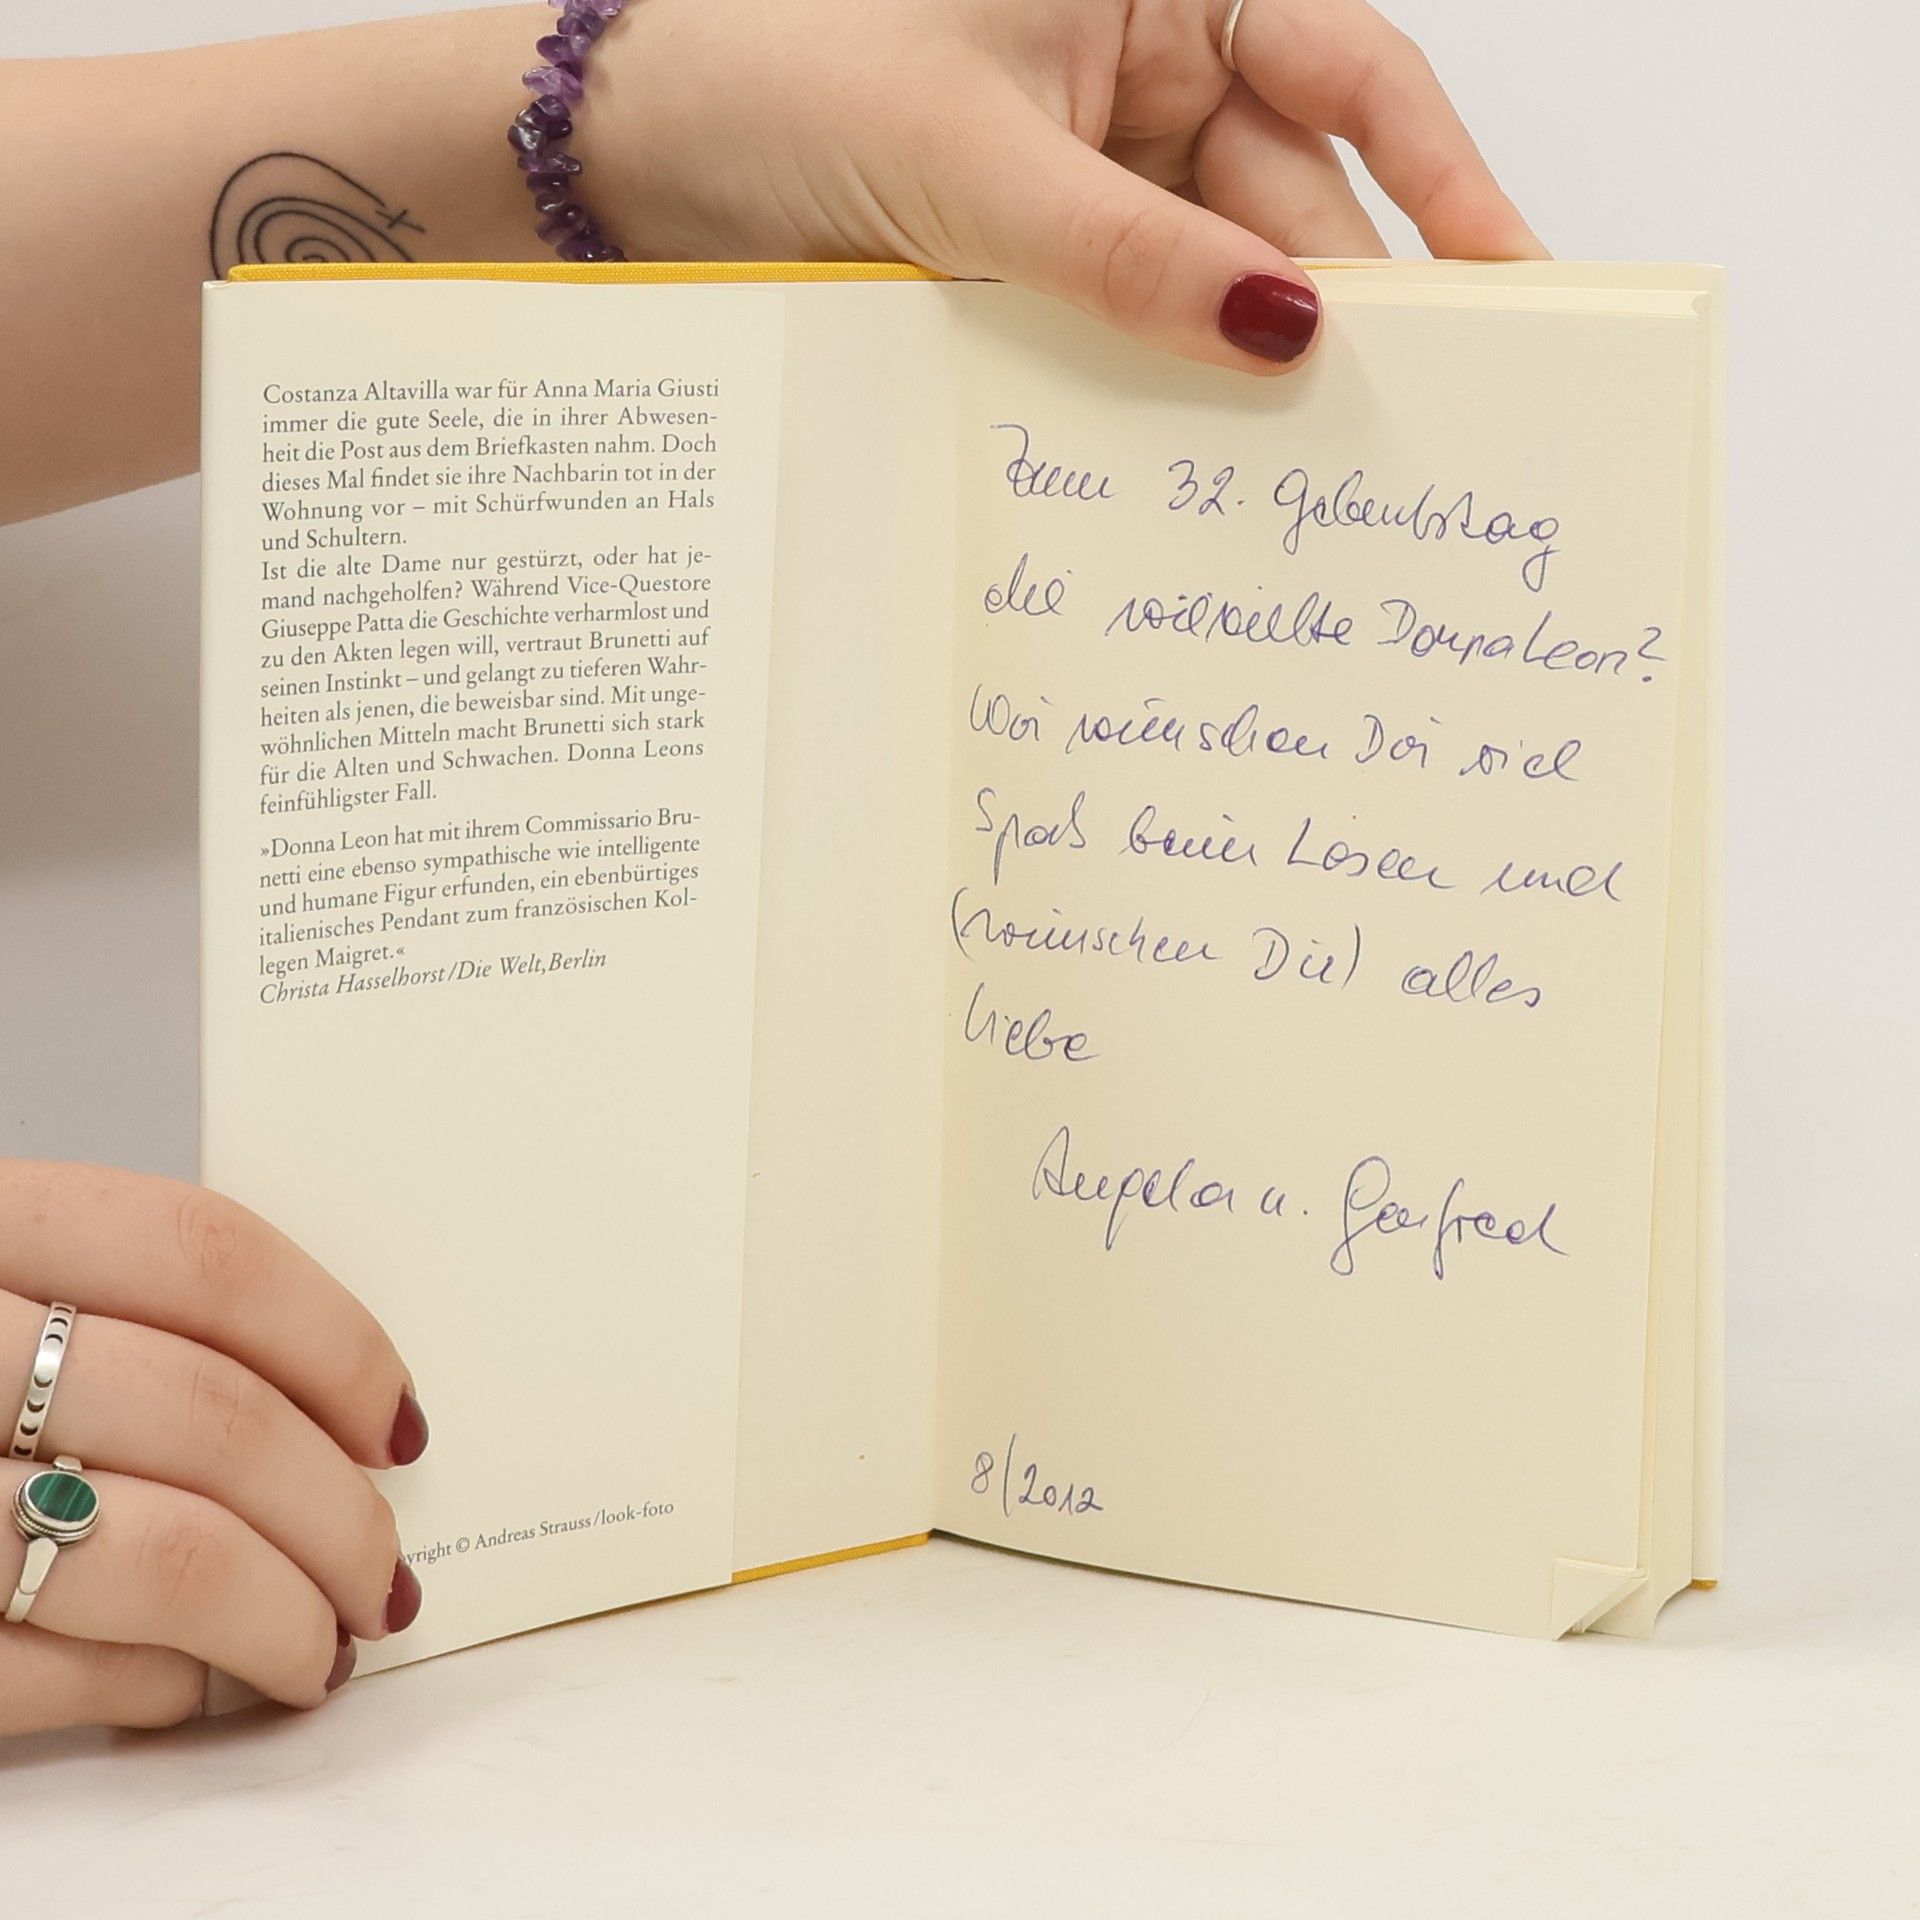 Costanza Altavilla war für Anna Maria Giusti
immer die gute Seele, die in ihrer Abwesen-
heit die Post aus dem Briefkasten nahm. Doch
dieses Mal findet sie ihre Nachbarin tot in der
Wohnung vor – mit Schürfwunden an Hals
und Schultern.
Ist die alte Dame nur gestürzt, oder hat je-
mand nachgeholfen? Während Vice-Questore
Giuseppe Patta die Geschichte verharmlost und
zu den Akten legen will, vertraut Brunetti auf
seinen Instinkt – und gelangt zu tieferen Wahr-
heiten als jenen, die beweisbar sind. Mit unge-
wöhnlichen Mitteln macht Brunetti sich stark
für die Alten und Schwachen. Donna Leons
feinfühligster Fall.
»Donna Leon hat mit ihrem Commissario Bru-
netti eine ebenso sympathische wie intelligente
und humane Figur erfunden, ein ebenbürtiges
italienisches Pendant zum französischen Kol-
legen Maigret.«
Christa Hasselhorst/Die Welt, Berlin
yright © Andreas Strauss/look-foto
Zum 32. Geburtstag
die wievielte Donna Leon?
Wir wünschen Dir viel
Spaß beim Lesen und
(wünschen Dir) alles
Liebe
Angela u.
8/2012